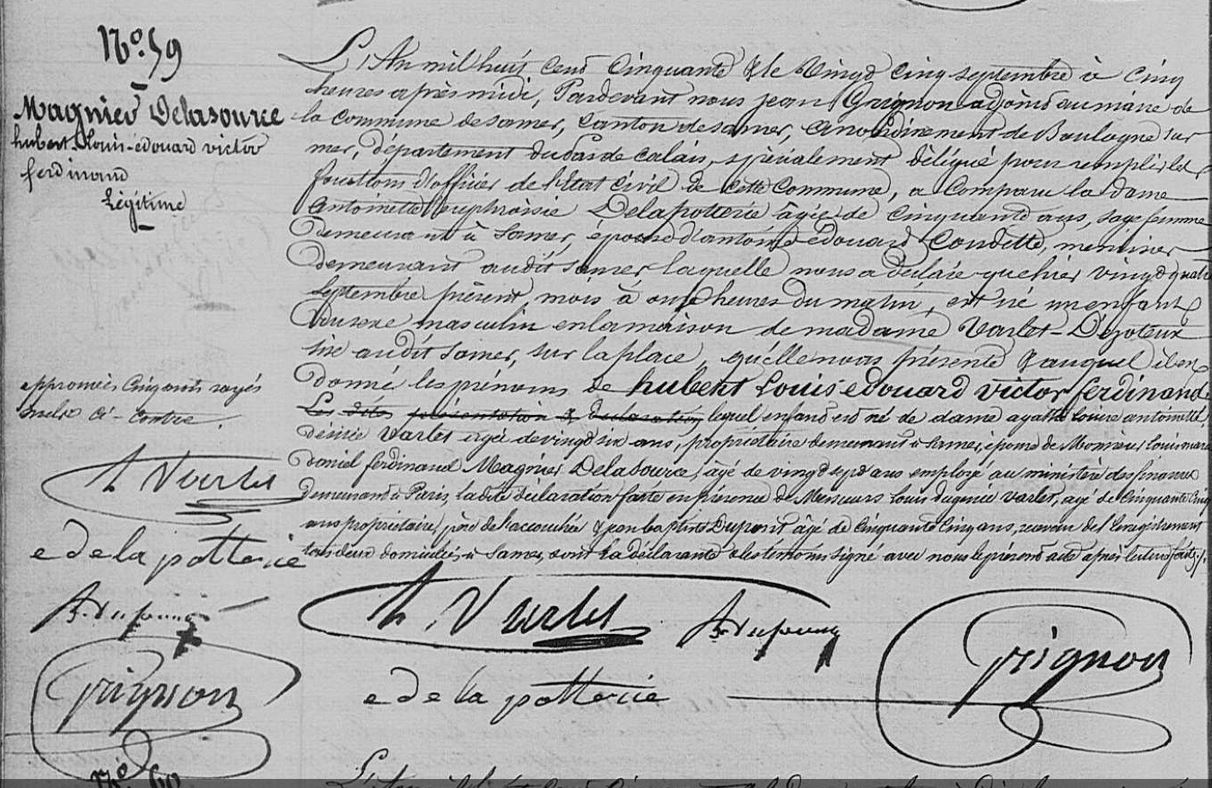 No. 59
Magnier Delasource
hubert Louis-édouard victor
ferdinand
Légitime
L'An mil huit cent Cinquante & le Vingt Cinq septembre à Cinq
heures après midi, Pardevant nous jean Grignon adjoint au maire de
la Commune de Samer, Canton de Samer, arrondissement de Boulogne sur
mer, département du Pas de Calais, spécialement délégué pour remplir les
fonctions d'officier de l'état Civil de cette Commune, a Comparu la Dame
Antoinette euphroisie Delapotterie âgée de Cinquante ans, sage femme
demeurant à Samer, épouse d'antoine édouard Condette, menuisier
demeurant audit Samer laquelle nous a déclaré que hier vingt quatre
septembre présent, mois à onze heures du matin, est né un enfant
du sexe masculin en la maison de madame Varlet-Dezoteux
sise audit Samer, sur la place, qu'elle nous présente & auquel il
donné les prénoms de hubert Louis edouard victor ferdinand
Les dites présentation & déclaration lequel enfant est né de dame agathe Louise antoinette
désirée Varlet agée de vingt six ans, propriétaire demeurant à Samer, épouse de Monsieur Louis marie
daniel ferdinand Magnier Delasource, agé de vingt sept ans employé au ministère des finances
demeurant à Paris, la dite déclaration faite en présence de Messieurs Louis Varlet, agé de Cinquante Cinq
ans propriétaire, père de l'accouchée & jean baptiste Dupont âgé de cinquante Cinq ans, receveur de l'enregistrement
tous deux domiciliés, à Samer, ont la déclarante & les témoins signé avec nous le présent acte après lecture faite ./.
approuvés Cinq mots rayés
nuls Ci-Contre.
A Varlet
e de la potterie
Grignon
A Varlet
e de la potterie
Grignon
No 60